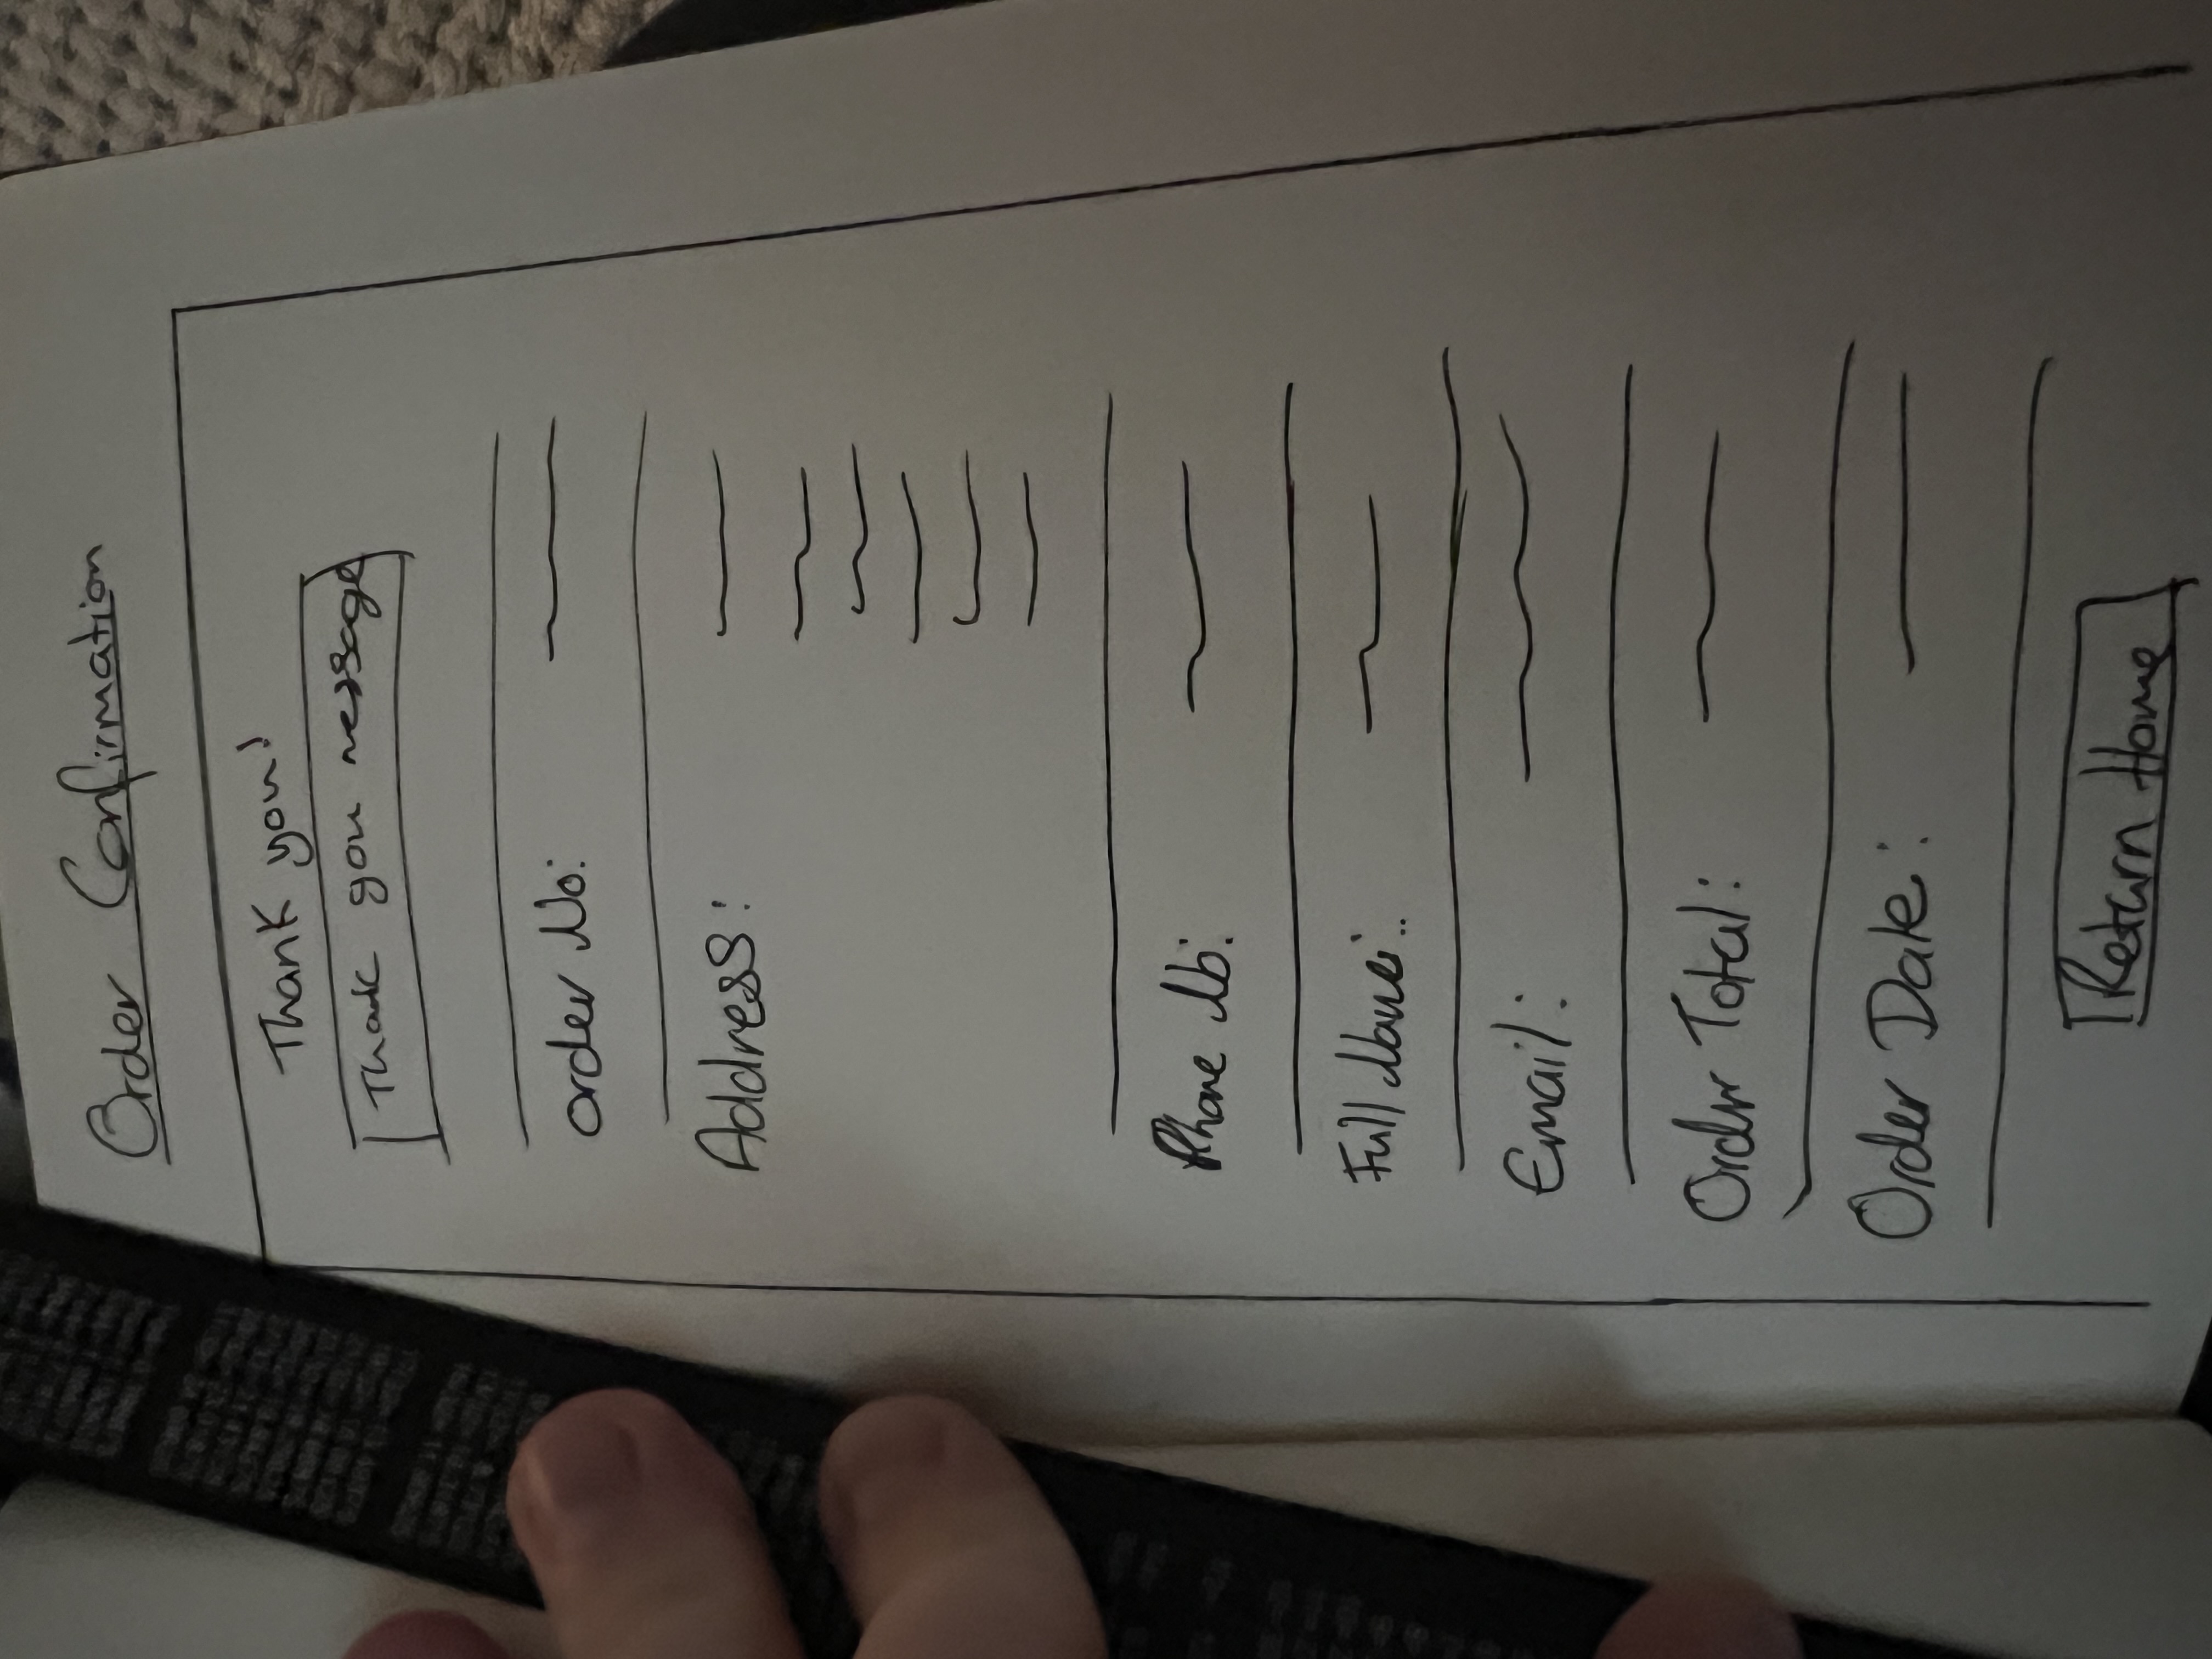 Order Confirmation
Thank you!
Thank you message
order No:
Address:
Phone No:
Full Name:
Email:
Order Total:
Order Date:
Return Home